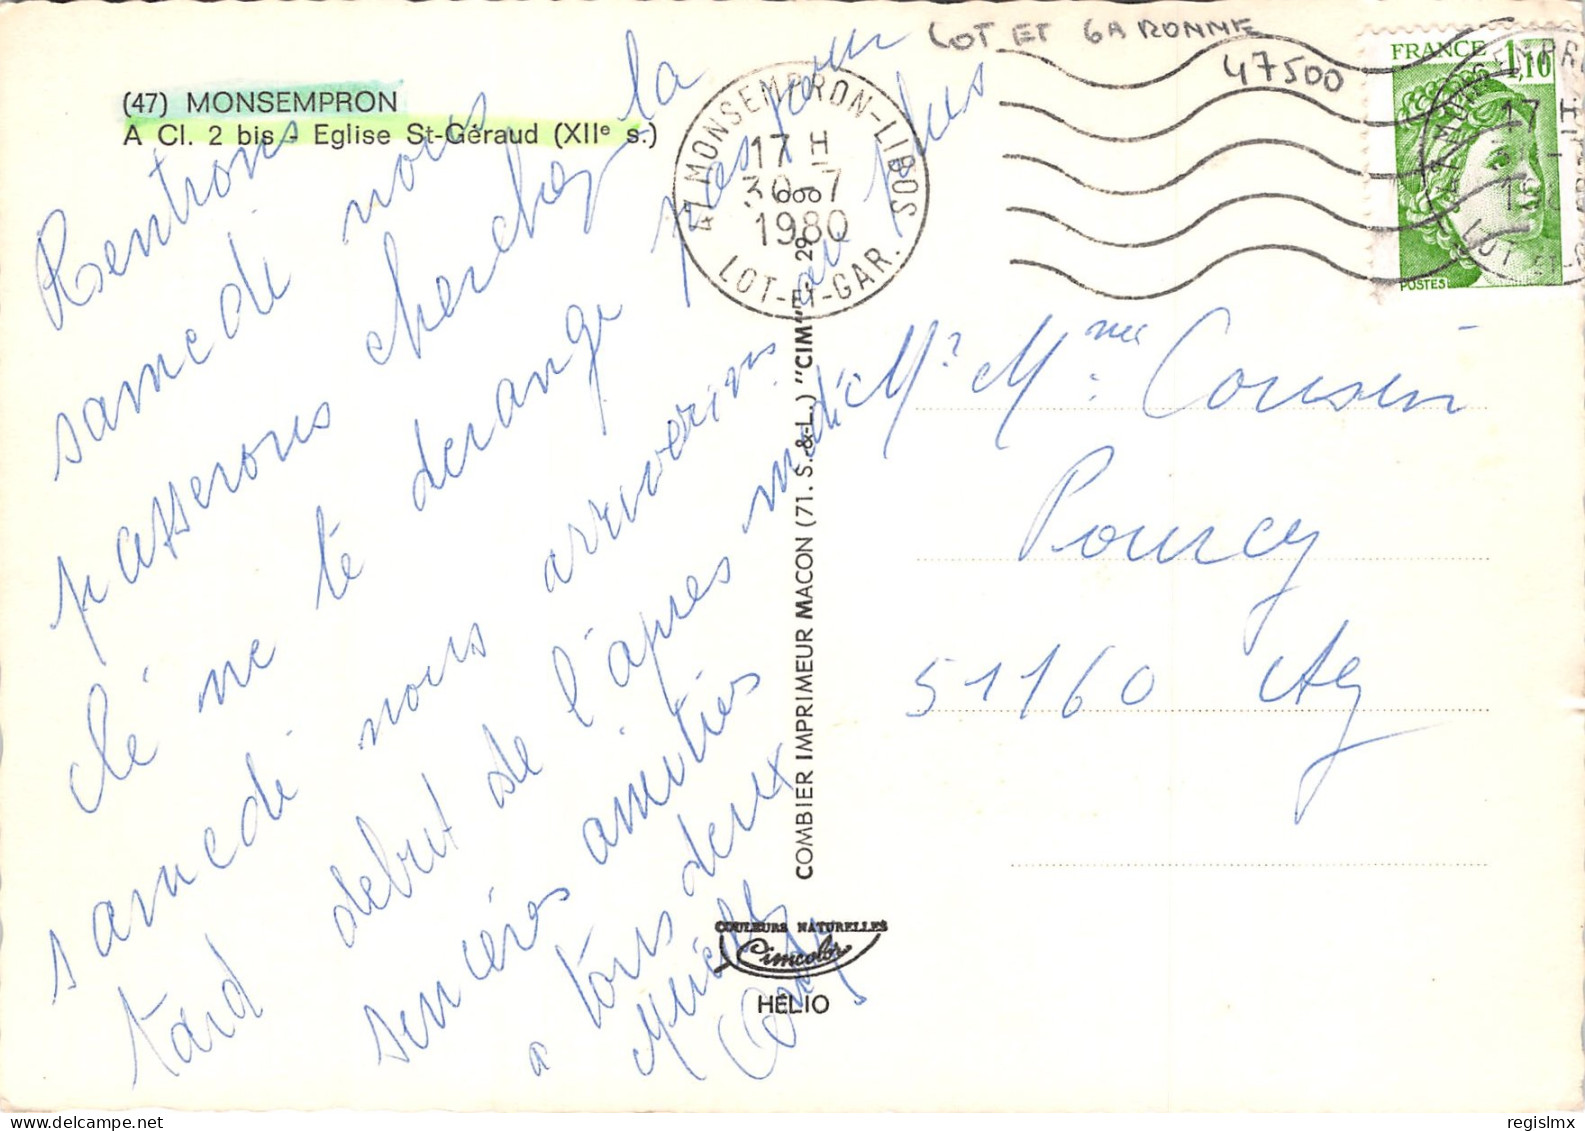 LOT ET GARONNE
47500
(47) MONSEMPRON
A Cl. 2 bis - Eglise St-Géraud (XIIe s.)
47 MONSEMPRON-LIBOS
17 H
30-7
1980
LOT-ET-GAR.
FRANCE 1,10
POSTES
Rentrons
samedi nous
passerons chercher la
clé ne te derange pas pour
samedi nous arriverons au plus
tard debut de l'après midi
sincéres amitiés
a tous deux
Mr Mme Cousin
Pourcy
51160 Ay
COMBIER IMPRIMEUR MACON (71. S.-&-L.) "CIM"
COULEURS NATURELLES
Cimcolor
HÉLIO
regislmx
delcampe.net